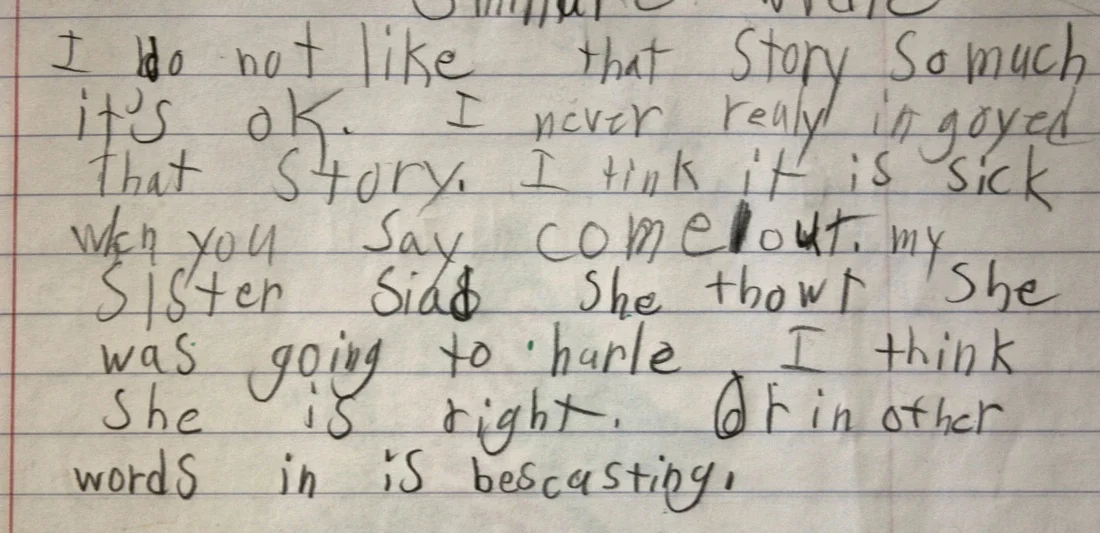 I do not like that Story So much
it's oK. I never realy ingoyed
that Story. I tink it is sick
when you Say come out. my
SISter Siad She thowt She
was going to harle I think
She is right. Or in other
words in is bescasting.